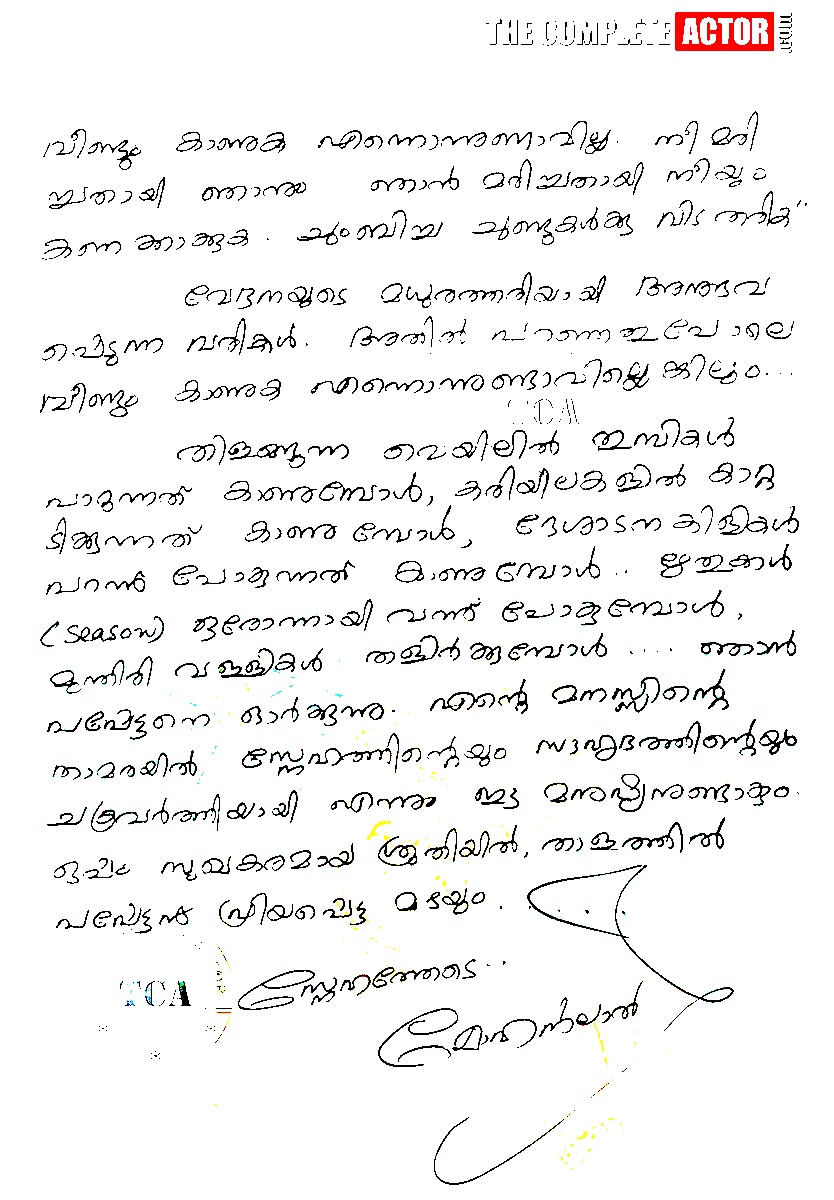 THE COMPLETE ACTOR
വീണ്ടും കാണുക എന്നൊന്നുണാവില്ല. നീ മരി
ച്ചതായി ഞാനും ഞാൻ മരിച്ചതായി നീയും
കണക്കാക്കുക. ചുംബിച്ച ചുണ്ടുകൾക്കു വിട തരിക"
വേദനയുടെ മധുരത്തരിയായി അനുഭവ
പ്പെടുന്ന വരികൾ. അതിൽ പറഞ്ഞതുപോലെ
വീണ്ടും കാണുക എന്നൊന്നുണ്ടാവില്ലെങ്കിലും...
TCA
തിളങ്ങുന്ന വെയിലിൽ തുമ്പികൾ
പാറുന്നത് കാണുമ്പോൾ, കരിയിലകളിൽ കാറ്റ
ടിക്കുന്നത് കാണുമ്പോൾ, ദേശാടനകിളികൾ
പറന്ന് പോകുന്നത് കാണുമ്പോൾ.. ഋതുക്കൾ
(season) ഒരോന്നായി വന്ന് പോകുമ്പോൾ,
മുന്തിരി വള്ളികൾ തളിർക്കുമ്പോൾ .... ഞാൻ
പപ്പേട്ടനെ ഓർക്കുന്നു. എന്റെ മനസ്സിന്റെ
താമരയിൽ സ്നേഹത്തിന്റെയും സൗഹൃദത്തിന്റെയും
ചക്രവർത്തിയായി എന്നും ഈ മനുഷ്യനുണ്ടാകും.
ഒപ്പം സുഖകരമായ ശ്രുതിയിൽ, താളത്തിൽ
പപ്പേട്ടന് പ്രിയപ്പെട്ട മഴയും.....
TCA
സ്നേഹത്തോടെ..
മോഹൻലാൽ